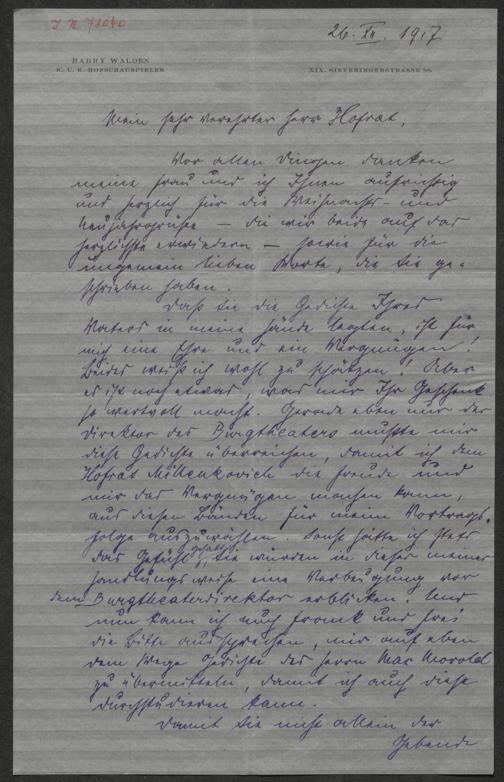 I. N. 71070
26. XII. 1917
HARRY WALDEN
K. U. K. HOFSCHAUSPIELER
XIX. SIEVERINGERSTRASSE
Mein sehr verehrter Herr Hofrat,
Vor allen Dingen danken
meine Frau und ich Ihnen aufrichtig
und herzlich für die Weihnachts- und
Neujahrsgrüße – die wir beide auf das
herzlichste erwiedern – sowie für die
ungemein lieben Worte, die Sie ge-
schrieben haben.
Daß Sie die Gedichte Ihres
Vaters in meine Hände legten, ist für
mich eine Ehre und ein Vergnügen!
Beides weiß ich wohl zu schätzen! Aber
es ist noch etwas, was mir Ihr Geschenk
so wertvoll macht. Gerade eben nur der
Direktor des Burgtheaters mußte mir
diese Gedichte überreichen, damit ich dem
Hofrat Millenkovich die Freude und
mir das Vergnügen machen kann,
aus diesen Bänden für meine Vortrags-
folge auszuwählen. Sonst hätte ich stets
das Gefühl gehabt, Sie würden in dieser meiner
Handlungsweise eine Verbeugung vor
dem Burgtheaterdirektor erblicken. Und
nun kann ich auch frank und frei
die Bitte aussprechen, mir auf eben
dem Wege Gedichte des Herrn Max Morold
zu übermitteln, damit ich auch diese
durchstudieren kann.
Damit Sie nicht allein der
Gebende